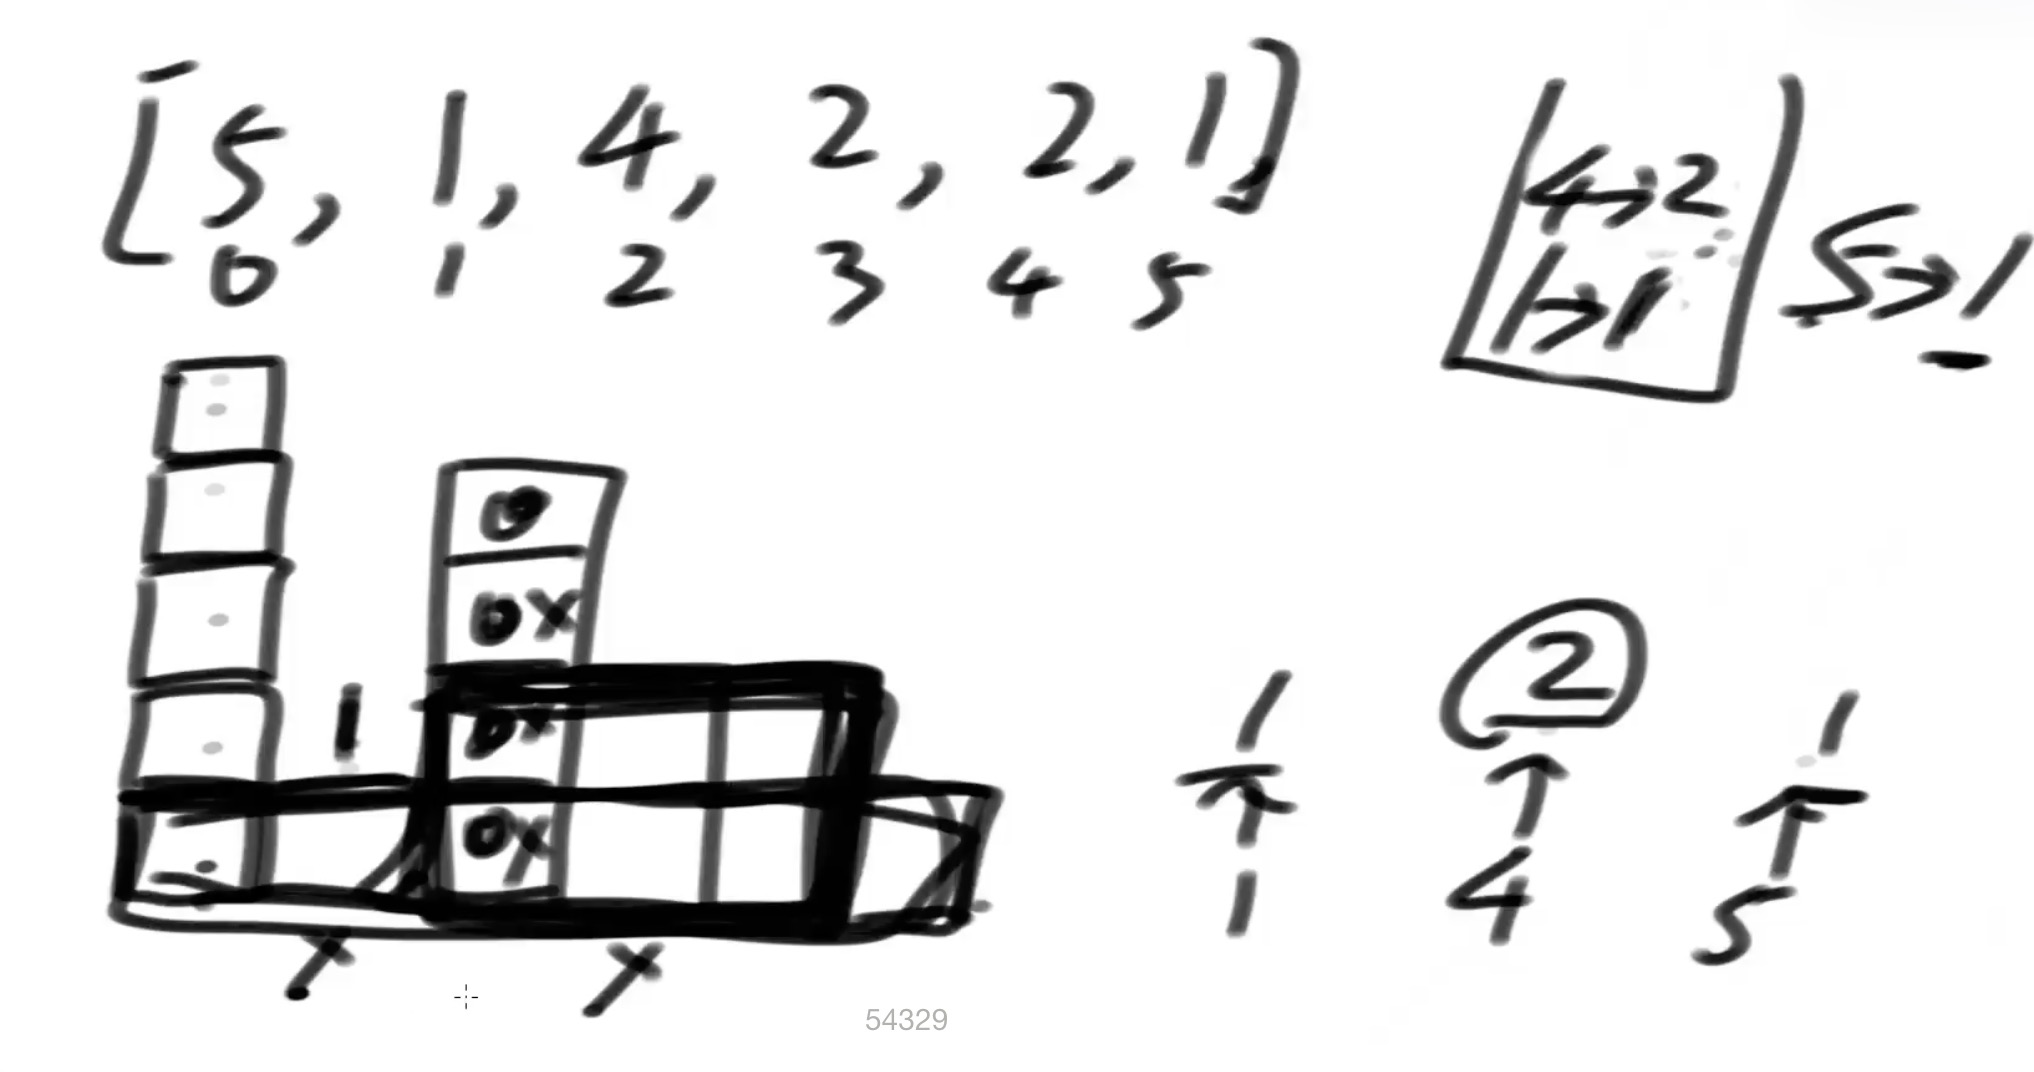 [5, 1, 4, 2, 2, 1]
0 1 2 3 4 5
4→2
1→1
5→1
0
0x
1
0x
0x
1 2 1
↑ ↑ ↑
1 4 5
54329